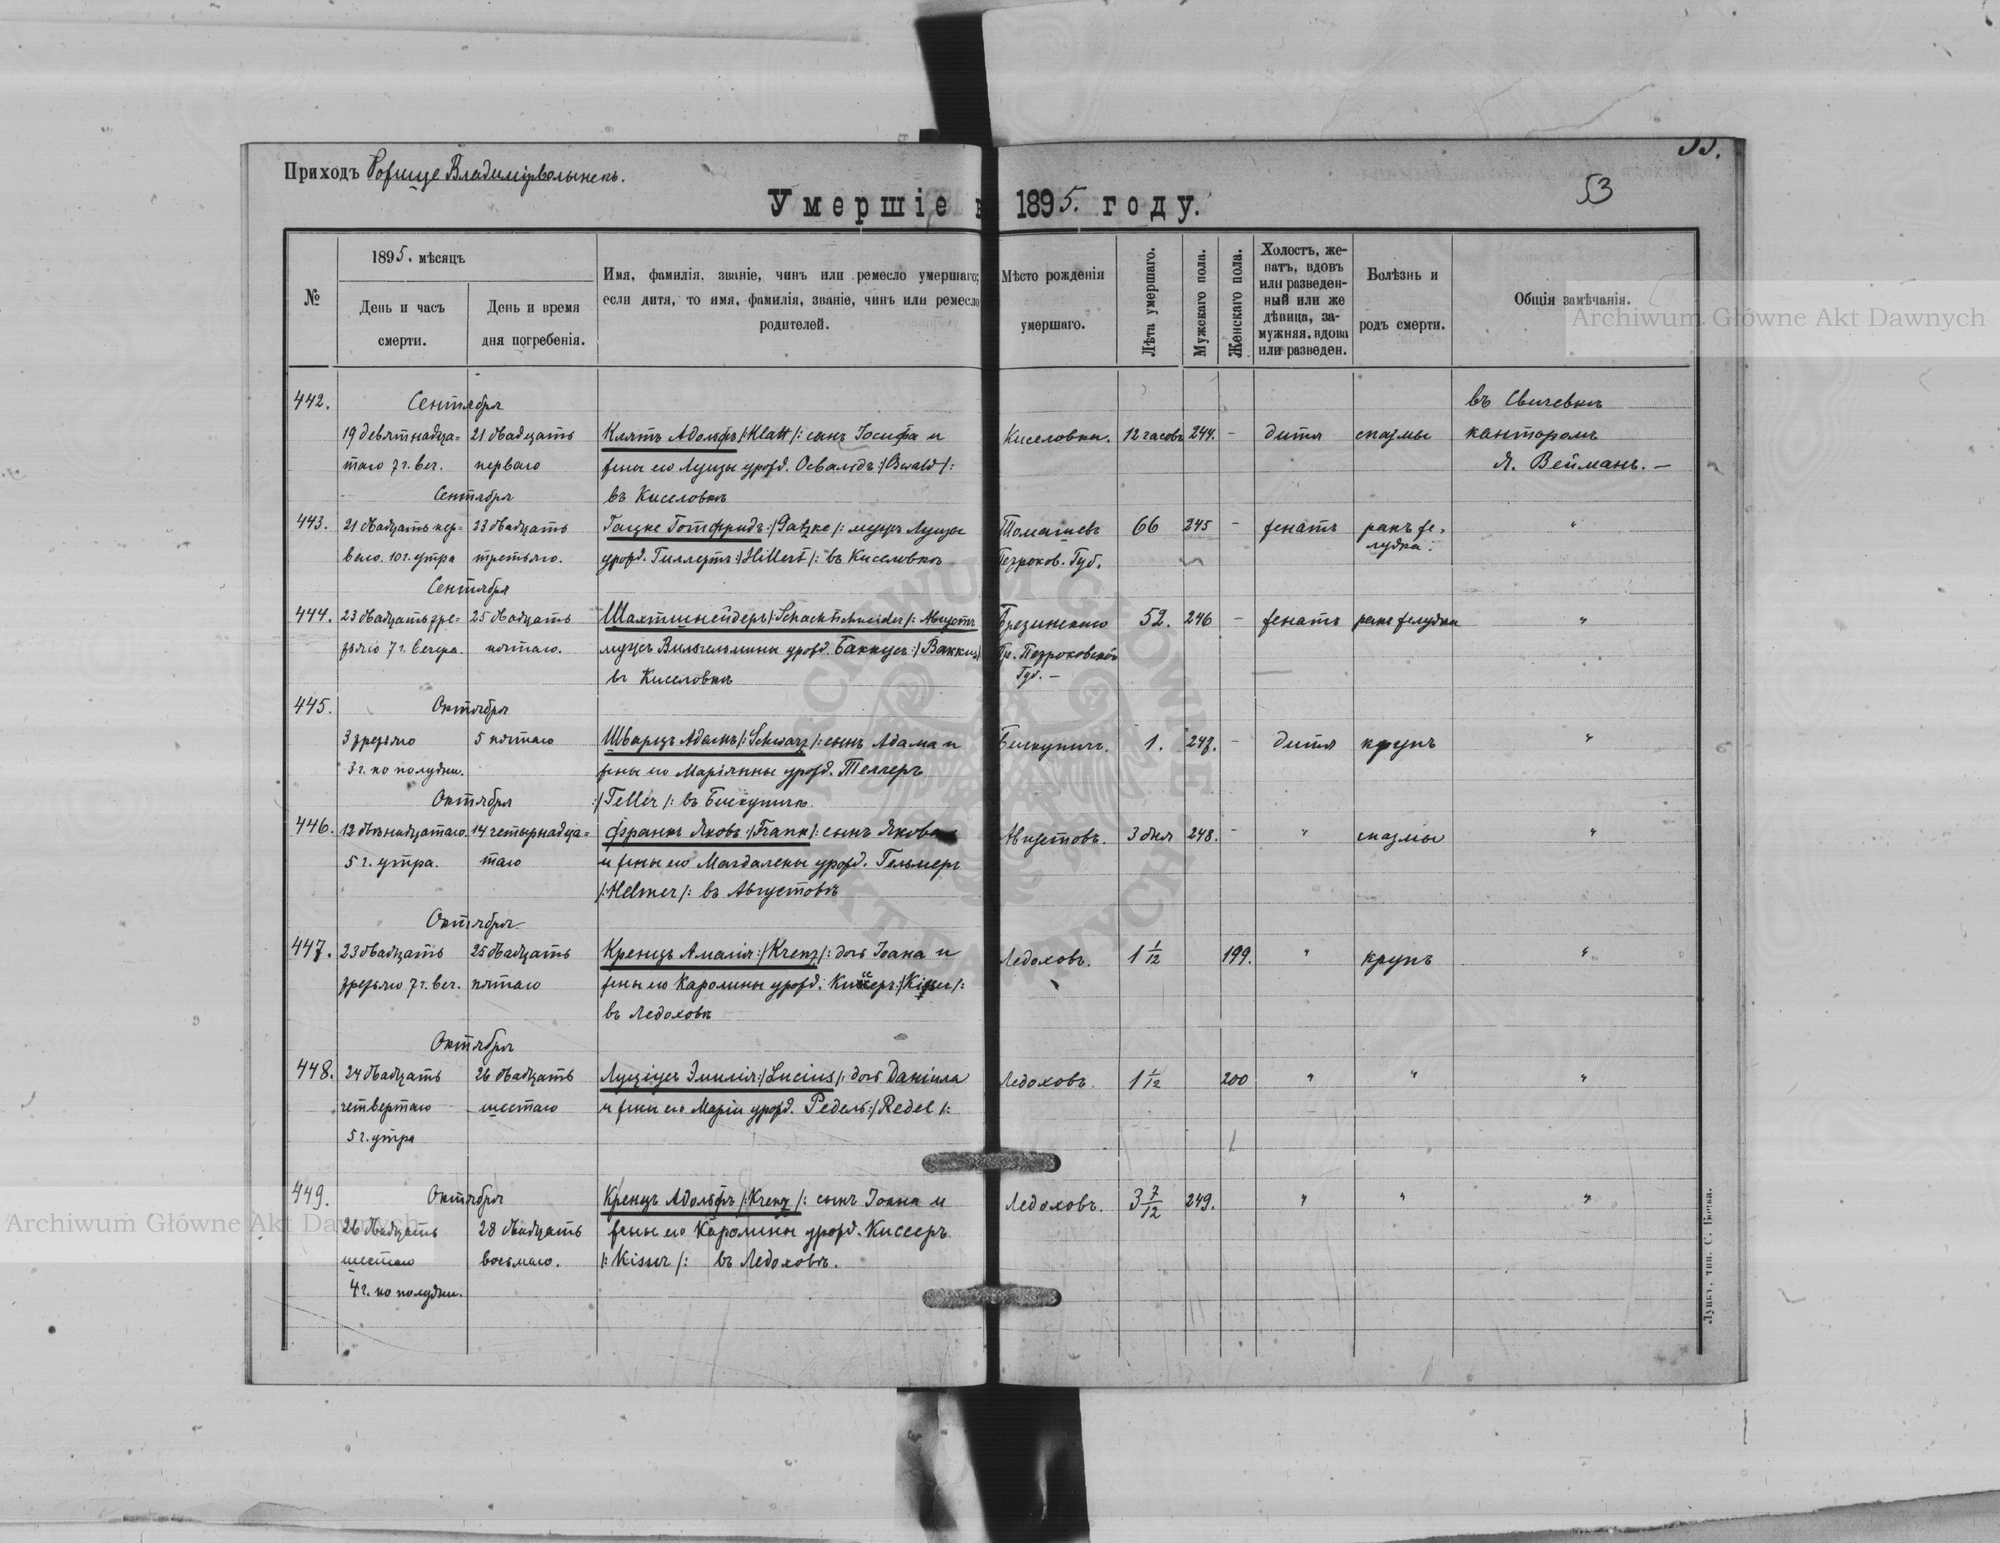 53.
Приходъ Рожище Владимірволынск.
53
Умершіе в 1895. году.
№
1895. мѣсяцъ
День и часъ смерти.
День и время дня погребенія.
Имя, фамилія, званіе, чинъ или ремесло умершаго;
если дитя, то имя, фамилія, званіе, чинъ или ремесло
родителей.
Мѣсто рожденія
умершаго.
Лѣта умершаго.
Мужескаго пола.
Женскаго пола.
Холостъ, же-
натъ, вдовъ
или разведен-
ный или же
дѣвица, за-
мужняя, вдова
или разведен.
Болѣзнь и
родъ смерти.
Общія замѣчанія.
Archiwum Główne Akt Dawnych
442. Сентября въ Свичевкѣ
19 девятнадца- 21 двадцать Клятъ Адольфъ /:Klatt/: сынъ Іосифа и Киселовка. 12 часовъ 244. - дитя спазмы канторомъ
таго 7 г. веч. перваго жены его Луизы урожд. Освальдъ :/Oswald/: Я. Вейманъ. —
Сентября въ Киселовкѣ
443. 21 двадцать пер- 23 двадцать Гацке Готфридъ :/Gatzke/: мужъ Луизы Томашевъ 66 245 - женатъ ракъ же- "
ваго. 10 г. утра третьяго. урожд. Гиллертъ :/Hillert/: въ Киселовкѣ Петроков. Губ. лудка.
Сентября
444. 23 двадцать тре- 25 двадцать Шахтшнейдеръ /:Schachtschneider/: Августъ Брезинскаго 52. 246 - женатъ ракъ желудка "
тьяго 7 г. вечера. пятаго. мужъ Вильгельмины урожд. Баккусъ :/Bakkus/: Гм. Петроковской
въ Киселовкѣ Губ. —
445. Октября
3 третьяго 5 пятаго Шварцъ Адамъ /:Schwarz/: сынъ Адама и Бискупичъ. 1. 247. - дитя крупъ "
3 г. по полудни. жены его Маріянны урожд. Теллеръ
Октября :/Teller/: въ Бискупичѣ.
446. 12 двѣнадцатаго. 14 четырнадца- Франкъ Яковъ :/Frank/: сынъ Якова Августовъ. 3 дня 248. - " спазмы "
5 г. утра. таго и жены его Магдалены урожд. Гельмеръ
/:Helmer/: въ Августовѣ
Октября
447. 23 двадцать 25 двадцать Кренцъ Амалія :/Krenz/: дочь Іоана и Ледоховъ. 1 1/12 199. " крупъ "
третьяго 7 г. веч. пятаго жены его Каролины урожд. Киссеръ :/Kisser/:
въ Ледоховѣ
Октября
448. 24 двадцать 26 двадцать Луціусъ Эмилія :/Lucius/: дочь Даніила Ледоховъ. 1 1/12 200 " " "
четвертаго шестаго и жены его Маріи урожд. Редель :/Redel/:
5 г. утра
449. Октября Кренцъ Адольфъ /:Krenz/: сынъ Іоана и Ледоховъ. 3 7/12 249. " " "
26 двадцать 28 двадцать жены его Каролины урожд. Киссеръ
шестаго восьмаго. /:Kisser/: въ Ледоховѣ.
4 г. по полудни.
Archiwum Główne Akt Dawnych
ARCHIWUM GŁÓWNE AKT DAWNYCH